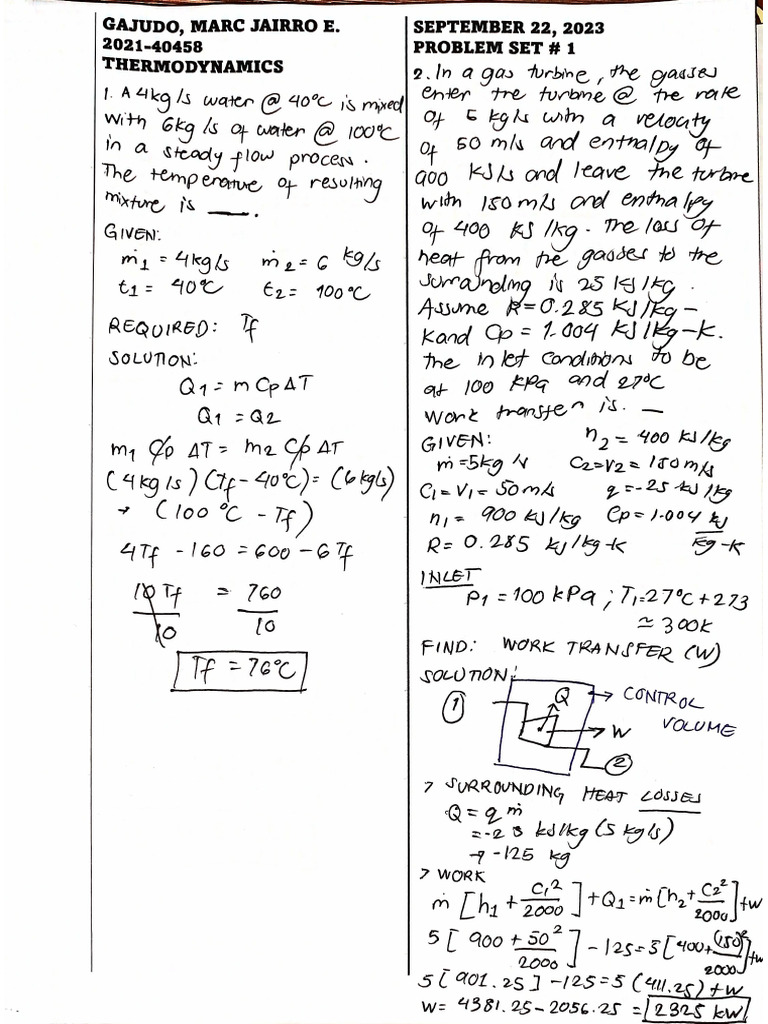 GAJUDO, MARC JAIRRO E.
2021-40458
THERMODYNAMICS
1. A 4kg/s water @ 40°C is mixed
with 6kg/s of water @ 100°C
in a steady flow process.
The temperature of resulting
mixture is ___.
GIVEN:
ṁ1 = 4kg/s ṁ2 = 6 kg/s
t1 = 40°C t2 = 100°C
REQUIRED: Tf
SOLUTION:
Q1 = m Cp ΔT
Q1 = Q2
m1 Cp ΔT = m2 Cp ΔT
(4kg/s) (Tf - 40°C) = (6kg/s)
→ (100°C - Tf)
4Tf - 160 = 600 - 6Tf
10 Tf = 760
10 10
Tf = 76°C
SEPTEMBER 22, 2023
PROBLEM SET # 1
2. In a gas turbine, the gasses
enter the turbine @ the rate
of 5 kg/s with a velocity
of 50 m/s and enthalpy of
900 KJ/s and leave the turbine
with 150 m/s and enthalpy
of 400 KJ/kg. The loss of
heat from the gasses to the
surrounding is 25 kJ/kg.
Assume R = 0.285 KJ/kg-
K and Cp = 1.004 KJ/kg-K.
the inlet conditions to be
at 100 KPa and 27°C
Work transfer is. —
GIVEN: n2 = 400 kJ/kg
ṁ = 5kg/s C2 = V2 = 150m/s
C1 = V1 = 50m/s q = -25 kJ/kg
n1 = 900 kJ/kg Cp = 1.004 kJ
R = 0.285 kJ/kg-K kg-K
INLET
P1 = 100 kPa ; T1 = 27°C + 273
≃ 300K
FIND: WORK TRANSFER (W)
SOLUTION:
1 Q → CONTROL
VOLUME
W
2
7 SURROUNDING HEAT LOSSES
Q = q ṁ
= -25 kJ/kg (5 kg/s)
→ -125 kg
7 WORK
ṁ [h1 + C1²/2000] + Q1 = ṁ [h2 + C2²/2000] + W
5 [900 + 50²/2000] - 125 = 5 [400 + (150)²/2000] + W
5 [901.25] - 125 = 5 (411.25) + W
W = 4381.25 - 2056.25 = 2325 kW